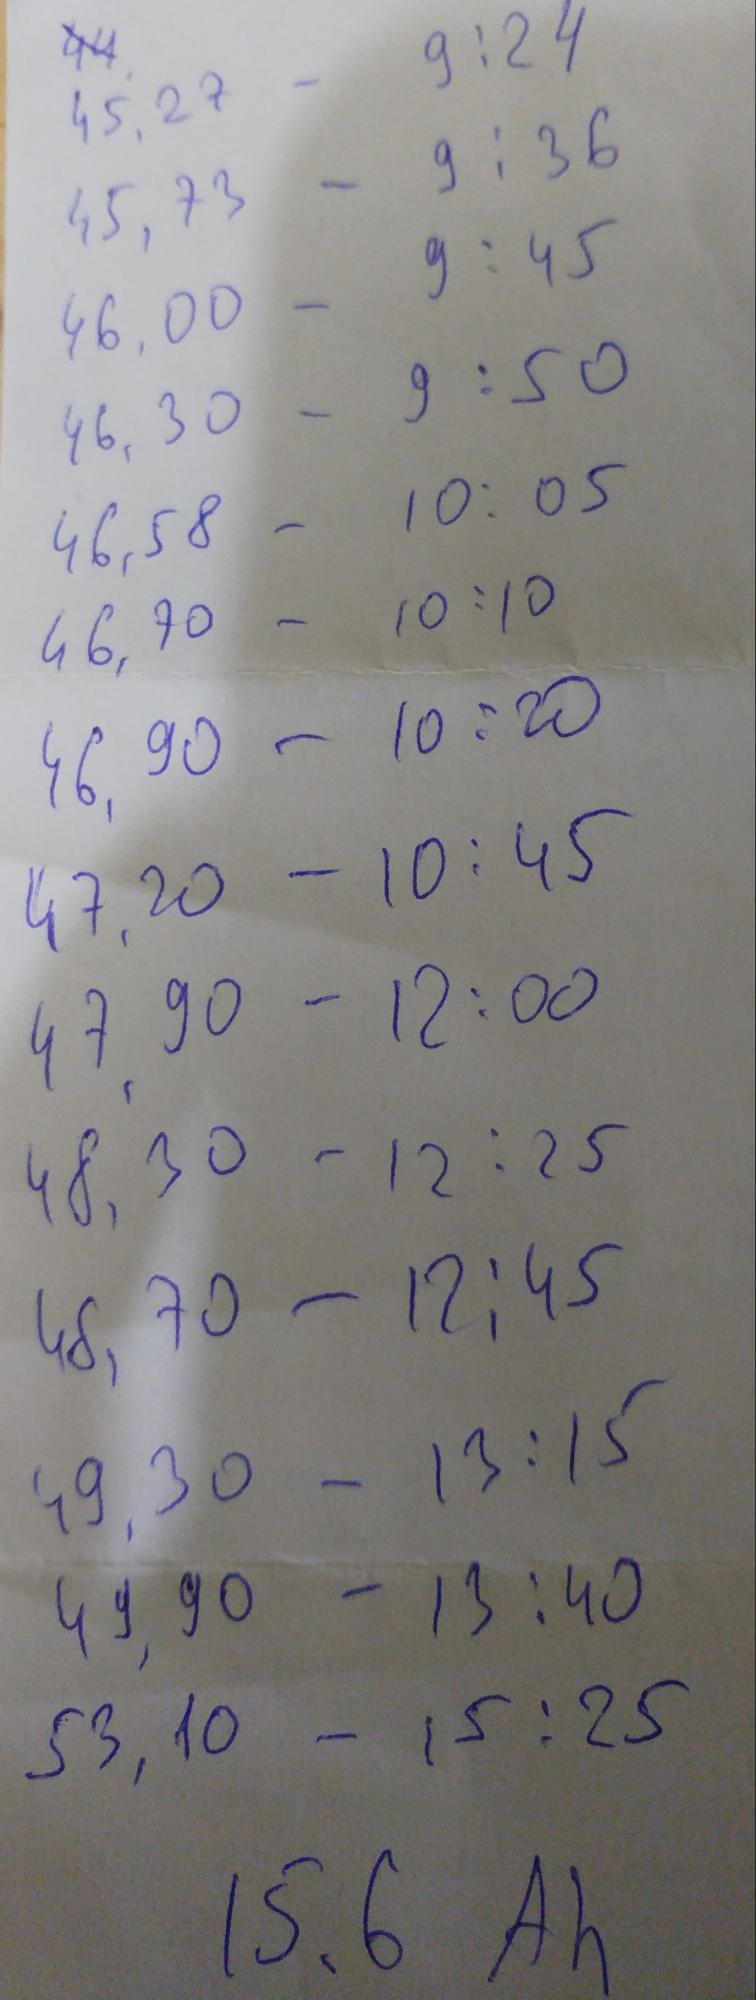 44
45,27 - 9:24
45,73 - 9:36
46,00 - 9:45
46,30 - 9:50
46,58 - 10:05
46,70 - 10:10
46,90 - 10:20
47,20 - 10:45
47,90 - 12:00
48,30 - 12:25
48,70 - 12:45
49,30 - 13:15
49,90 - 13:40
53,10 - 15:25
15.6 Ah